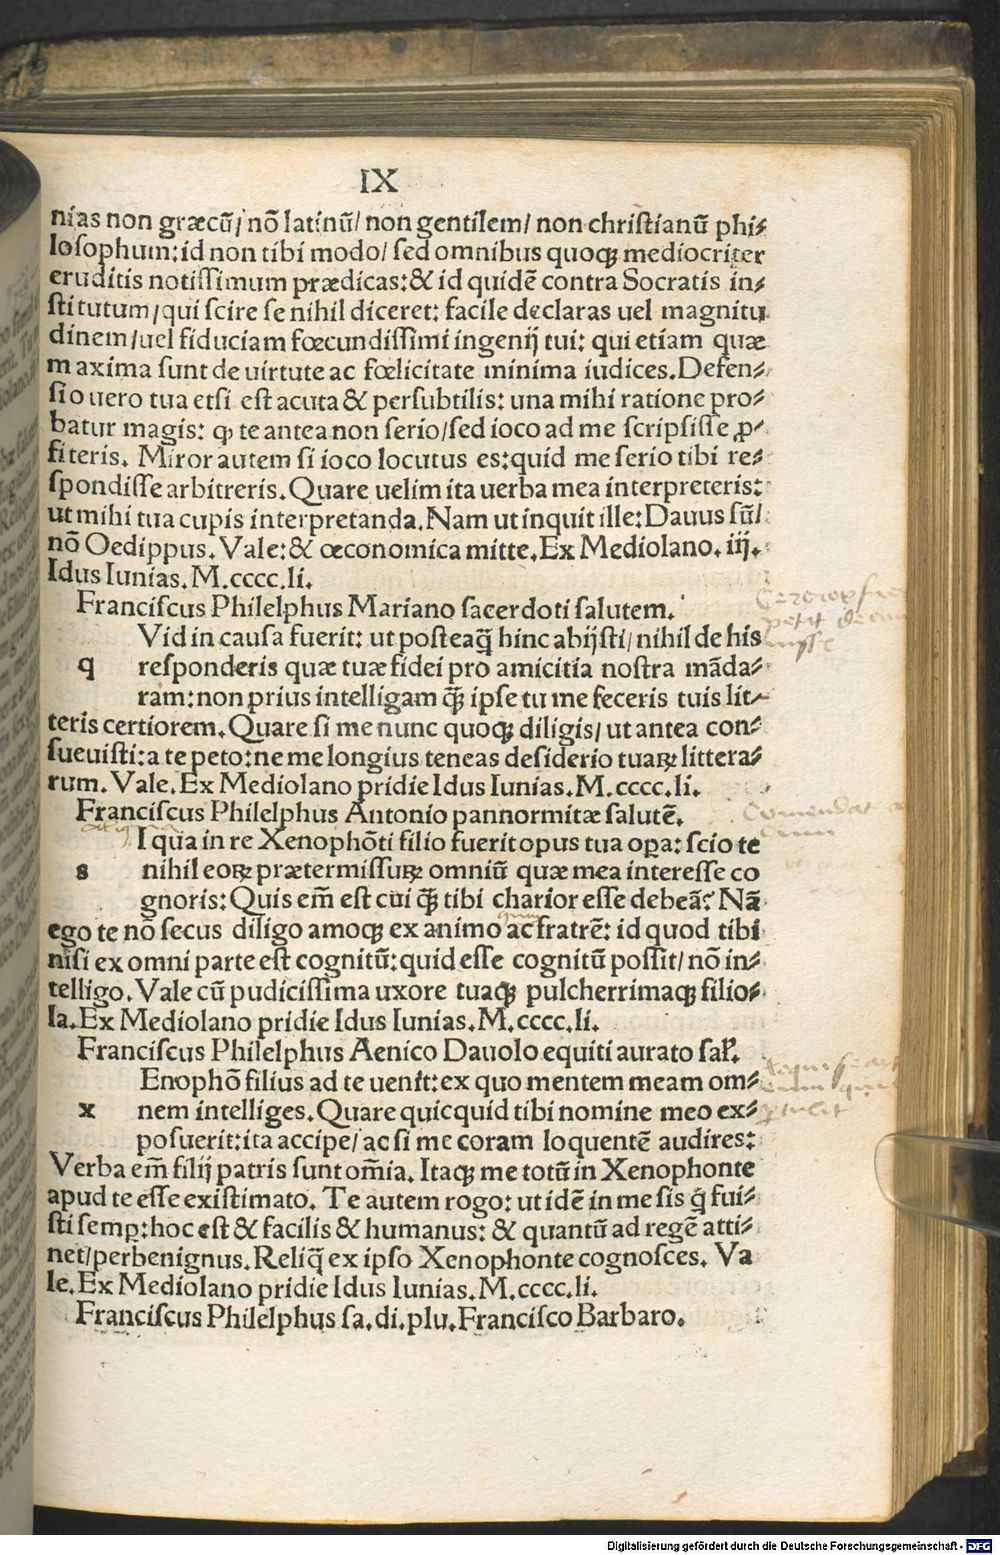 IX
nias non græcū/ nō latinū/ non gentilem/ non christianū phi⸗
losophum: id non tibi modo/ sed omnibus quoqꝫ mediocriter
eruditis notissimum prædicas: & id quidē contra Socratis in⸗
stitutum/ qui scire se nihil diceret: facile declaras uel magnitu
dinem/ uel fiduciam fœcundissimi ingenij tui: qui etiam quæ
maxima sunt de uirtute ac fœlicitate minima iudices. Defen⸗
sio uero tua etsi est acuta & persubtilis: una mihi ratione pro⸗
batur magis: ꝙ te antea non serio/ sed ioco ad me scripsisse ꝓ⸗
fiteris. Miror autem si ioco locutus es: quid me serio tibi re⸗
spondisse arbitreris. Quare uelim ita uerba mea interpreteris:
ut mihi tua cupis interpretanda. Nam ut inquit ille: Dauus sū/
nō Oedippus. Vale: & œconomica mitte. Ex Mediolano. iij.
Idus Iunias. M.cccc.li.
Franciscus Philelphus Mariano sacerdoti salutem.
Vid in causa fuerit: ut posteaq̄ hinc abijsti/ nihil de his
q responderis quæ tuæ fidei pro amicitia nostra māda⸗
ram: non prius intelligam q̄ꝫ ipse tu me feceris tuis lit⸗
teris certiorem. Quare si me nunc quoqꝫ diligis/ ut antea con⸗
sueuisti: a te peto: ne me longius teneas desiderio tuaꝝ littera⸗
rum. Vale. Ex Mediolano pridie Idus Iunias. M.cccc.li.
Franciscus Philelphus Antonio pannormitæ salutē.
I qua in re Xenophōti filio fuerit opus tua oꝑa: scio te
s nihil eoꝝ prætermissuꝝ omniū quæ mea interesse co
gnoris: Quis em̄ est cui q̄ꝫ tibi charior esse debeā? Nā
ego te nō secus diligo amoqꝫ ex animo ac fratrē: id quod tibi
nisi ex omni parte est cognitū: quid esse cognitū possit/ nō in⸗
telligo. Vale cū pudicissima uxore tuaqꝫ pulcherrimaqꝫ filio⸗
la. Ex Mediolano pridie Idus Iunias. M.cccc.li.
Franciscus Philelphus Aenico Dauolo equiti aurato saꝉ.
Enophō filius ad te uenit: ex quo mentem meam om⸗
x nem intelliges. Quare quicquid tibi nomine meo ex⸗
posuerit: ita accipe/ ac si me coram loquentē audires:
Verba em̄ filij patris sunt om̄ia. Itaqꝫ me totū in Xenophonte
apud te esse existimato. Te autem rogo: ut idē in me sis q̄ fui⸗
sti semꝑ: hoc est & facilis & humanus: & quantū ad regē atti⸗
net/ perbenignus. Reliq̄ ex ipso Xenophonte cognosces. Va
le. Ex Mediolano pridie Idus Iunias. M.cccc.li.
Franciscus Philelphus sa. di. plu. Francisco Barbaro.
Digitalisierung gefördert durch die Deutsche Forschungsgemeinschaft - DFG